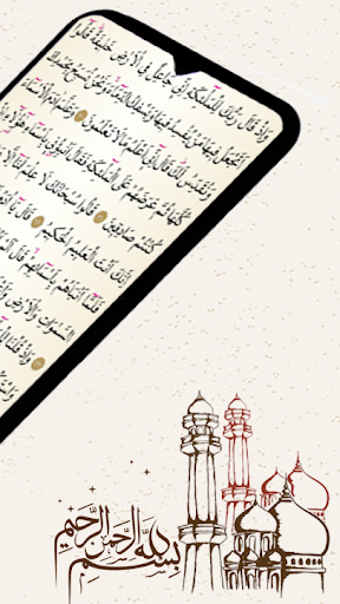 وَإِذْ قَالَ رَبُّكَ لِلْمَلَٰٓئِكَةِ إِنِّي جَاعِلٌ فِي الْأَرْضِ خَلِيفَةً قَالُوٓا
أَتَجْعَلُ فِيهَا مَن يُفْسِدُ فِيهَا وَيَسْفِكُ الدِّمَآءَ وَنَحْنُ نُسَبِّحُ بِحَمْدِكَ
وَنُقَدِّسُ لَكَ قَالَ إِنِّيٓ أَعْلَمُ مَا لَا تَعْلَمُونَ وَعَلَّمَ ءَادَمَ الْأَسْمَآءَ
كُلَّهَا ثُمَّ عَرَضَهُمْ عَلَى الْمَلَٰٓئِكَةِ فَقَالَ أَنۢبِـُٔونِي بِأَسْمَآءِ هَٰٓؤُلَآءِ
كُنتُمْ صَٰدِقِينَ قَالُوا سُبْحَٰنَكَ لَا عِلْمَ لَنَآ إِلَّا
إِنَّكَ أَنتَ الْعَلِيمُ الْحَكِيمُ قَالَ
فَلَمَّآ أَنۢبَأَهُم بِأَسْمَآئِهِمْ قَالَ
السَّمَٰوَٰتِ وَالْأَرْضِ
وَإِذْ قُلْنَا
بِسْمِ اللَّهِ الرَّحْمَٰنِ الرَّحِيمِ